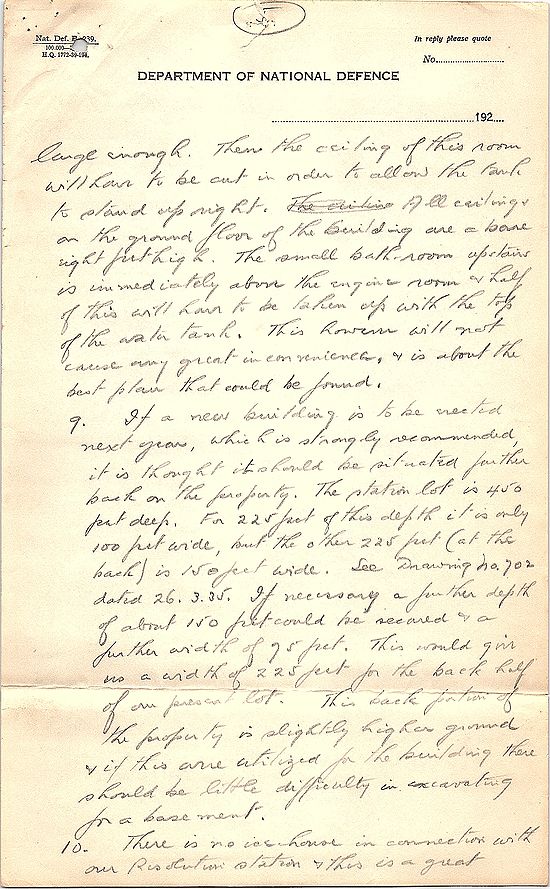 Nat. Def. B-239.
100,000-
H.Q. 1772-39-194.
In reply please quote
No.
DEPARTMENT OF NATIONAL DEFENCE
192
large enough. Then the ceiling of this room
will have to be cut in order to allow the tank
to stand up right. The ceiling All ceilings
on the ground floor of the building are a bare
eight feet high. The small bath-room upstairs
is immediately above the engine room & half
of this will have to be taken up with the top
of the water tank. This however will not
cause any great inconvenience, & is about the
best plan that could be found.
9. If a new building is to be erected
next year, which is strongly recommended,
it is thought it should be situated further
back on the property. The station lot is 450
feet deep. For 225 feet of this depth it is only
100 feet wide, but the other 225 feet (at the
back) is 150 feet wide. See Drawing No. 702
dated 26.3.35. If necessary a further depth
of about 150 feet could be secured & a
further width of 75 feet. This would give
us a width of 225 feet for the back half
of our present lot. This back portion of
the property is slightly higher ground
& if this were utilized for the building there
should be little difficulty in excavating
for a basement.
10. There is no ice-house in connection with
our Resolution station & this is a great